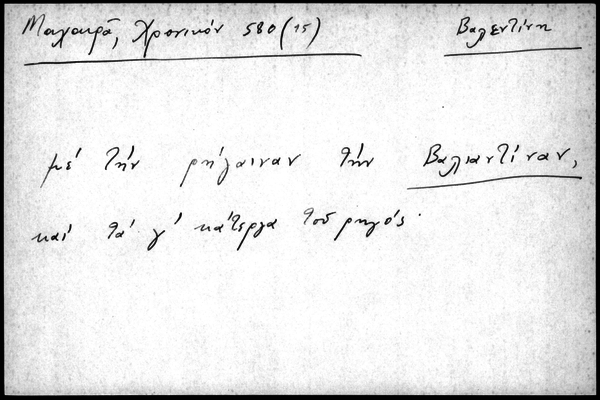 Μαχαιρᾶ, Χρονικόν 580 (15)
Βαλεντίνη
μέ τήν ρήγαιναν τήν Βαλιαντίναν,
καί τά γ' κάτεργα τοῦ ρηγός·